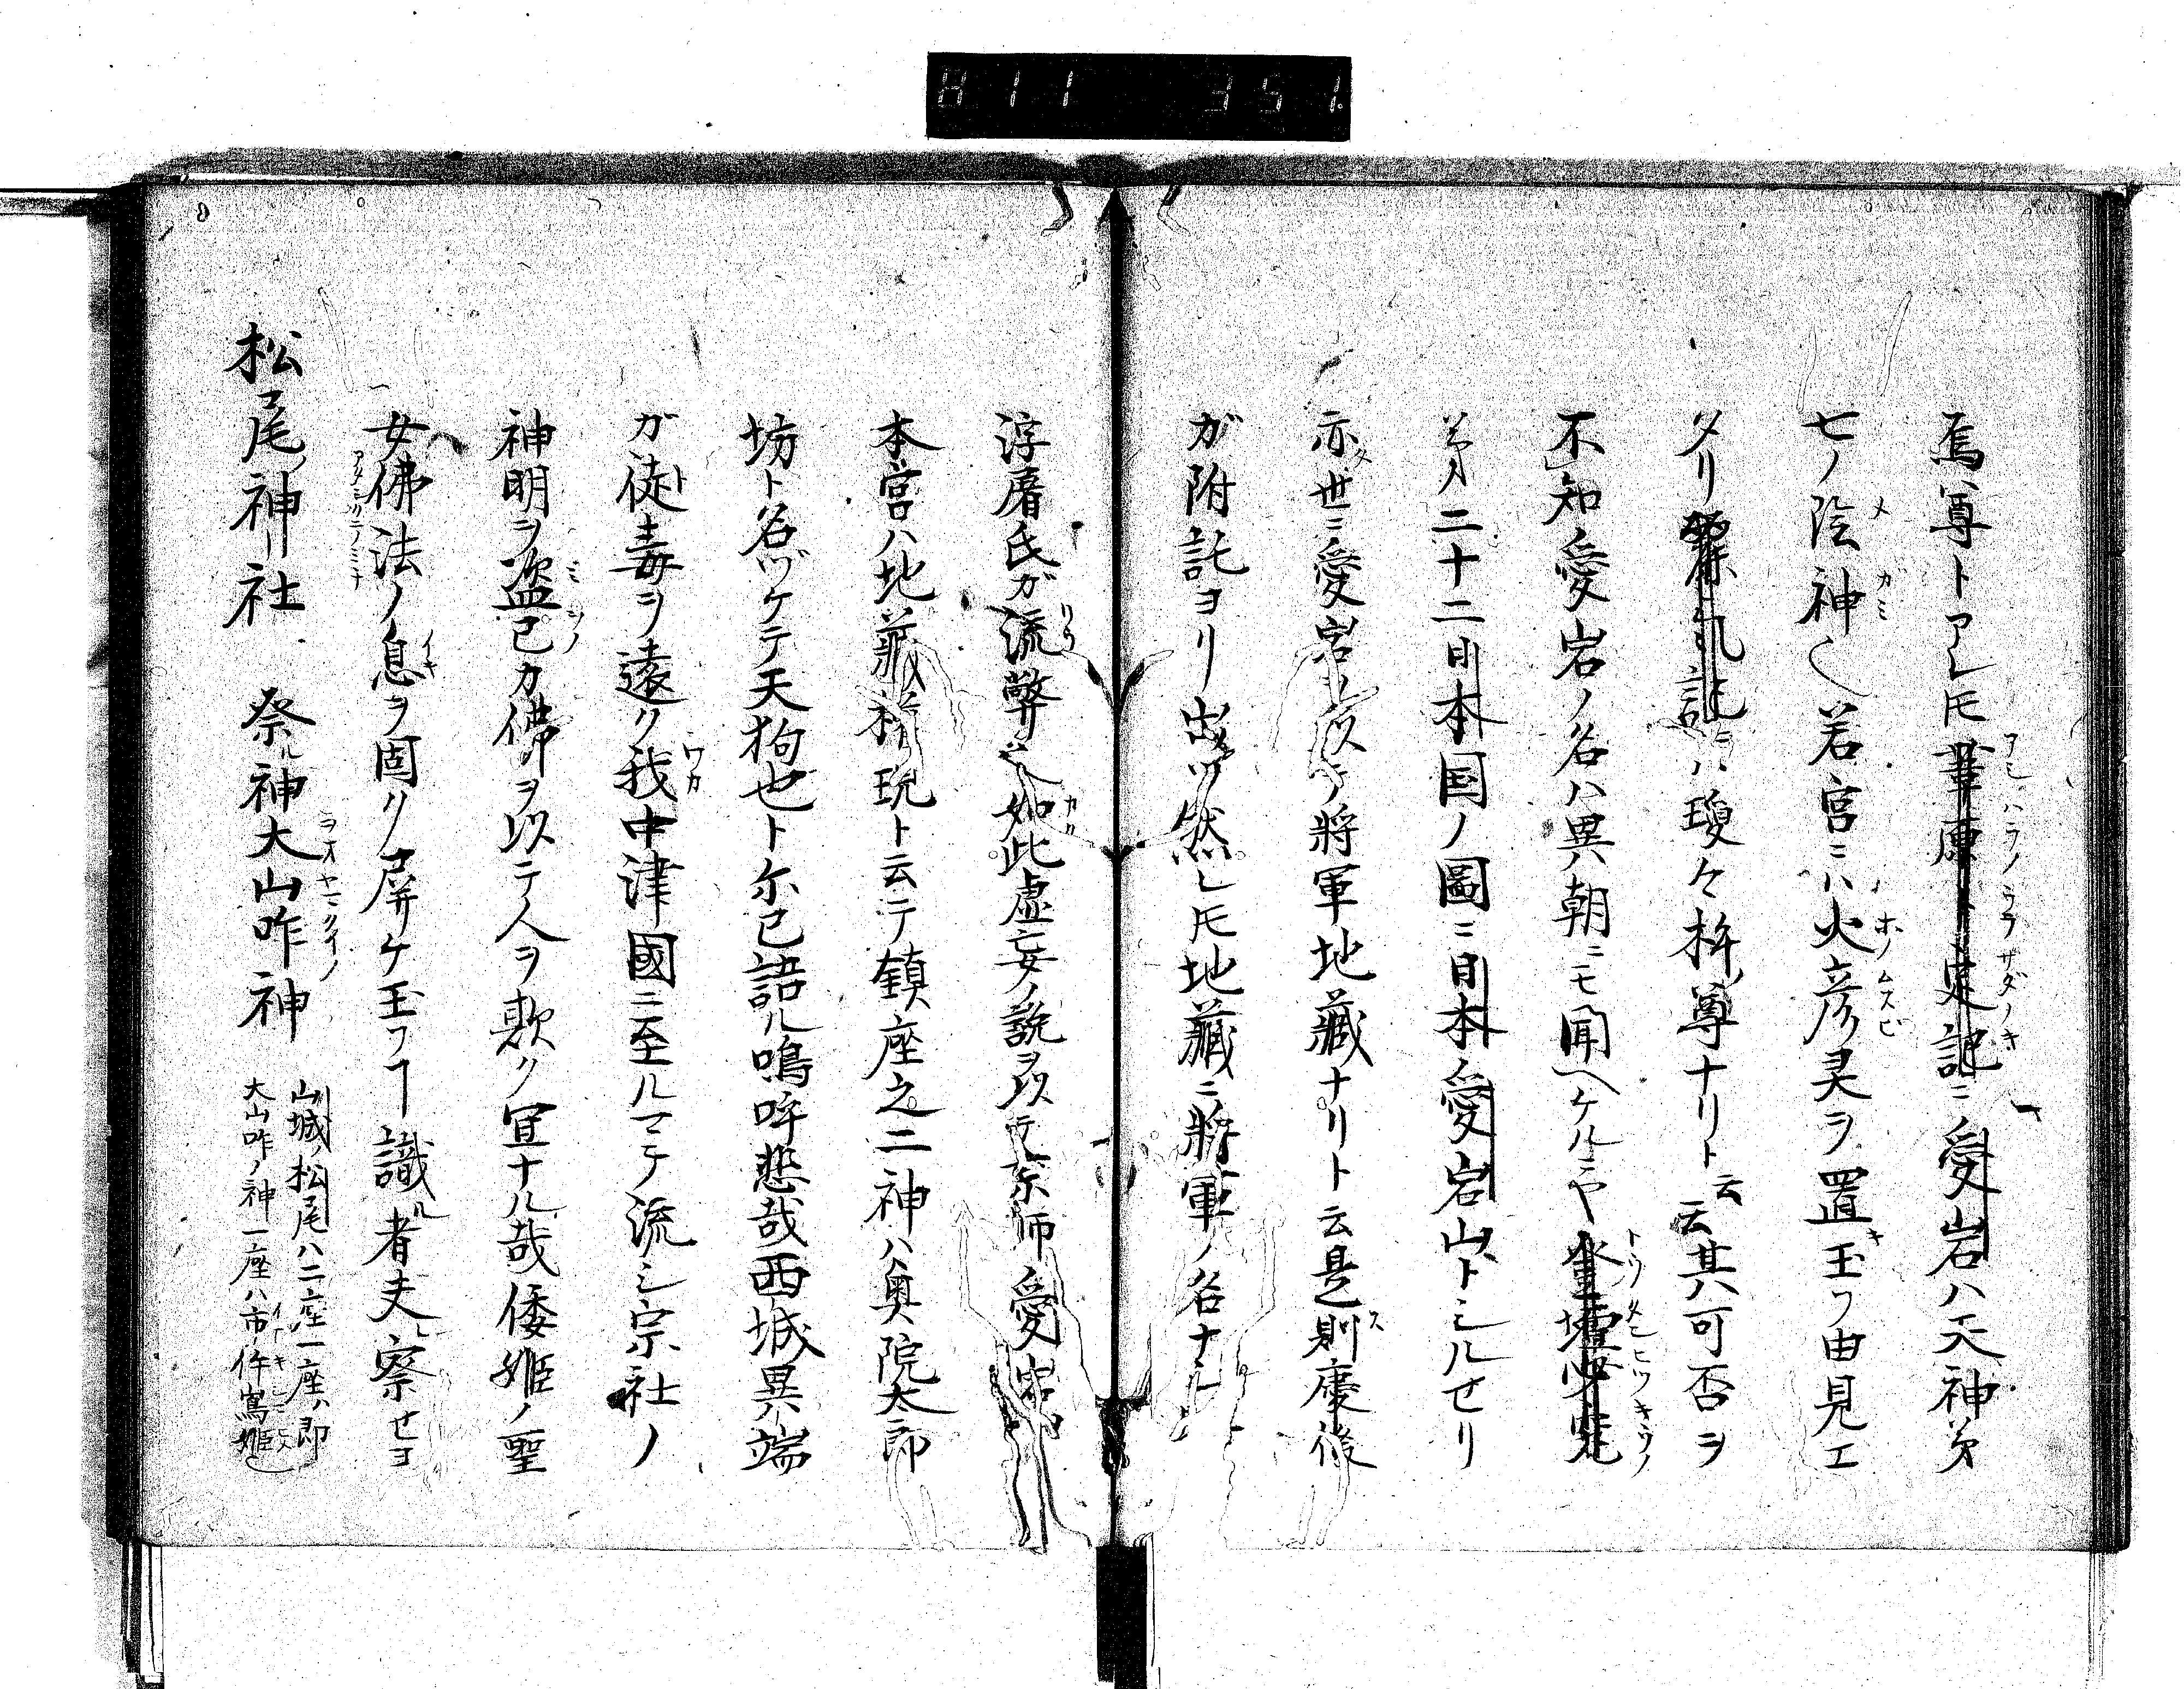 811 351
焉尊トアレ𪜈葦原卜定記ニ愛宕ハ天神第
七ノ陰神也若宮ニハ火彦灵ヲ置玉フ由見エ
タリ麗気記ニハ瓊々杵尊ナリト云云其可否ヲ
不知愛宕ノ名ハ異朝ニモ聞ヘケルニヤ登壇必究
第二十二日本国ノ圖ニ日本ノ愛宕山トシルセリ
亦世ニ愛宕ヲ以テ將軍地藏ナリト云是則慶俊
ガ附託ヨリ出ツ然レ𪜈地藏ニ將軍ノ名ナシ
浮屠氏ガ流弊也如此虚妄ノ説ヲ以テ京師愛宕
本宮ハ地蔵権現ト云テ鎮座之二神ハ奥院太郎
坊ト名ヅケテ天狗也ト尓己語ル嗚呼悲哉西域異端
ガ徒毒ヲ遠ク我中津國ニ至ルマテ流シ宗社ノ
神明ヲ盗己カ佛ヲ以テ人ヲ欺ク宣ナル哉倭姫ノ聖
女佛法ノ息ヲ固ク屏ケ玉フヿ識ル者夫レ察セヨ
松尾神社 祭ル神大山咋神
山城ノ松尾ハ二座一座ハ即
大山咋ノ神一座ハ市杵嶌姫也